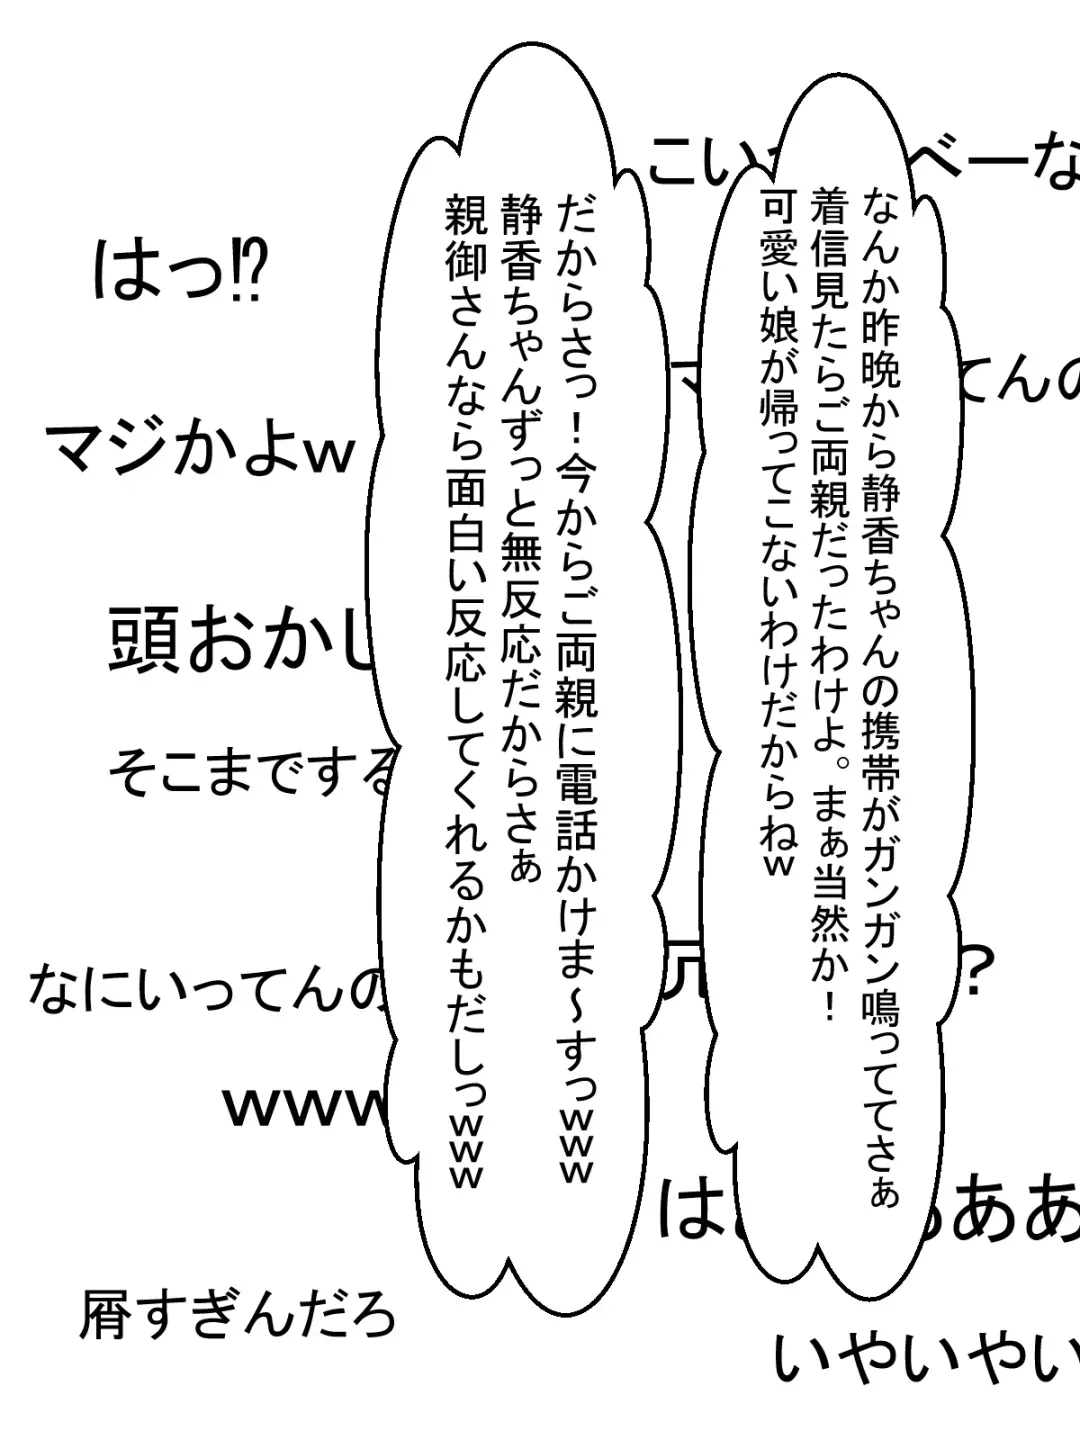 なんか昨晩から静香ちゃんの携帯がガンガン鳴っててさぁ
着信見たらご両親だったわけよ。まぁ当然か！
可愛い娘が帰ってこないわけだからねｗ
だからさっ！今からご両親に電話かけま～すっｗｗｗ
静香ちゃんずっと無反応だからさぁ
親御さんなら面白い反応してくれるかもだしっｗｗｗ
こい
べーな
てんの
？
ああ
いやいやい
はっ⁉
マジかよｗ
頭おかし
そこまでする
なにいってんの
ｗｗｗ
屑すぎんだろ